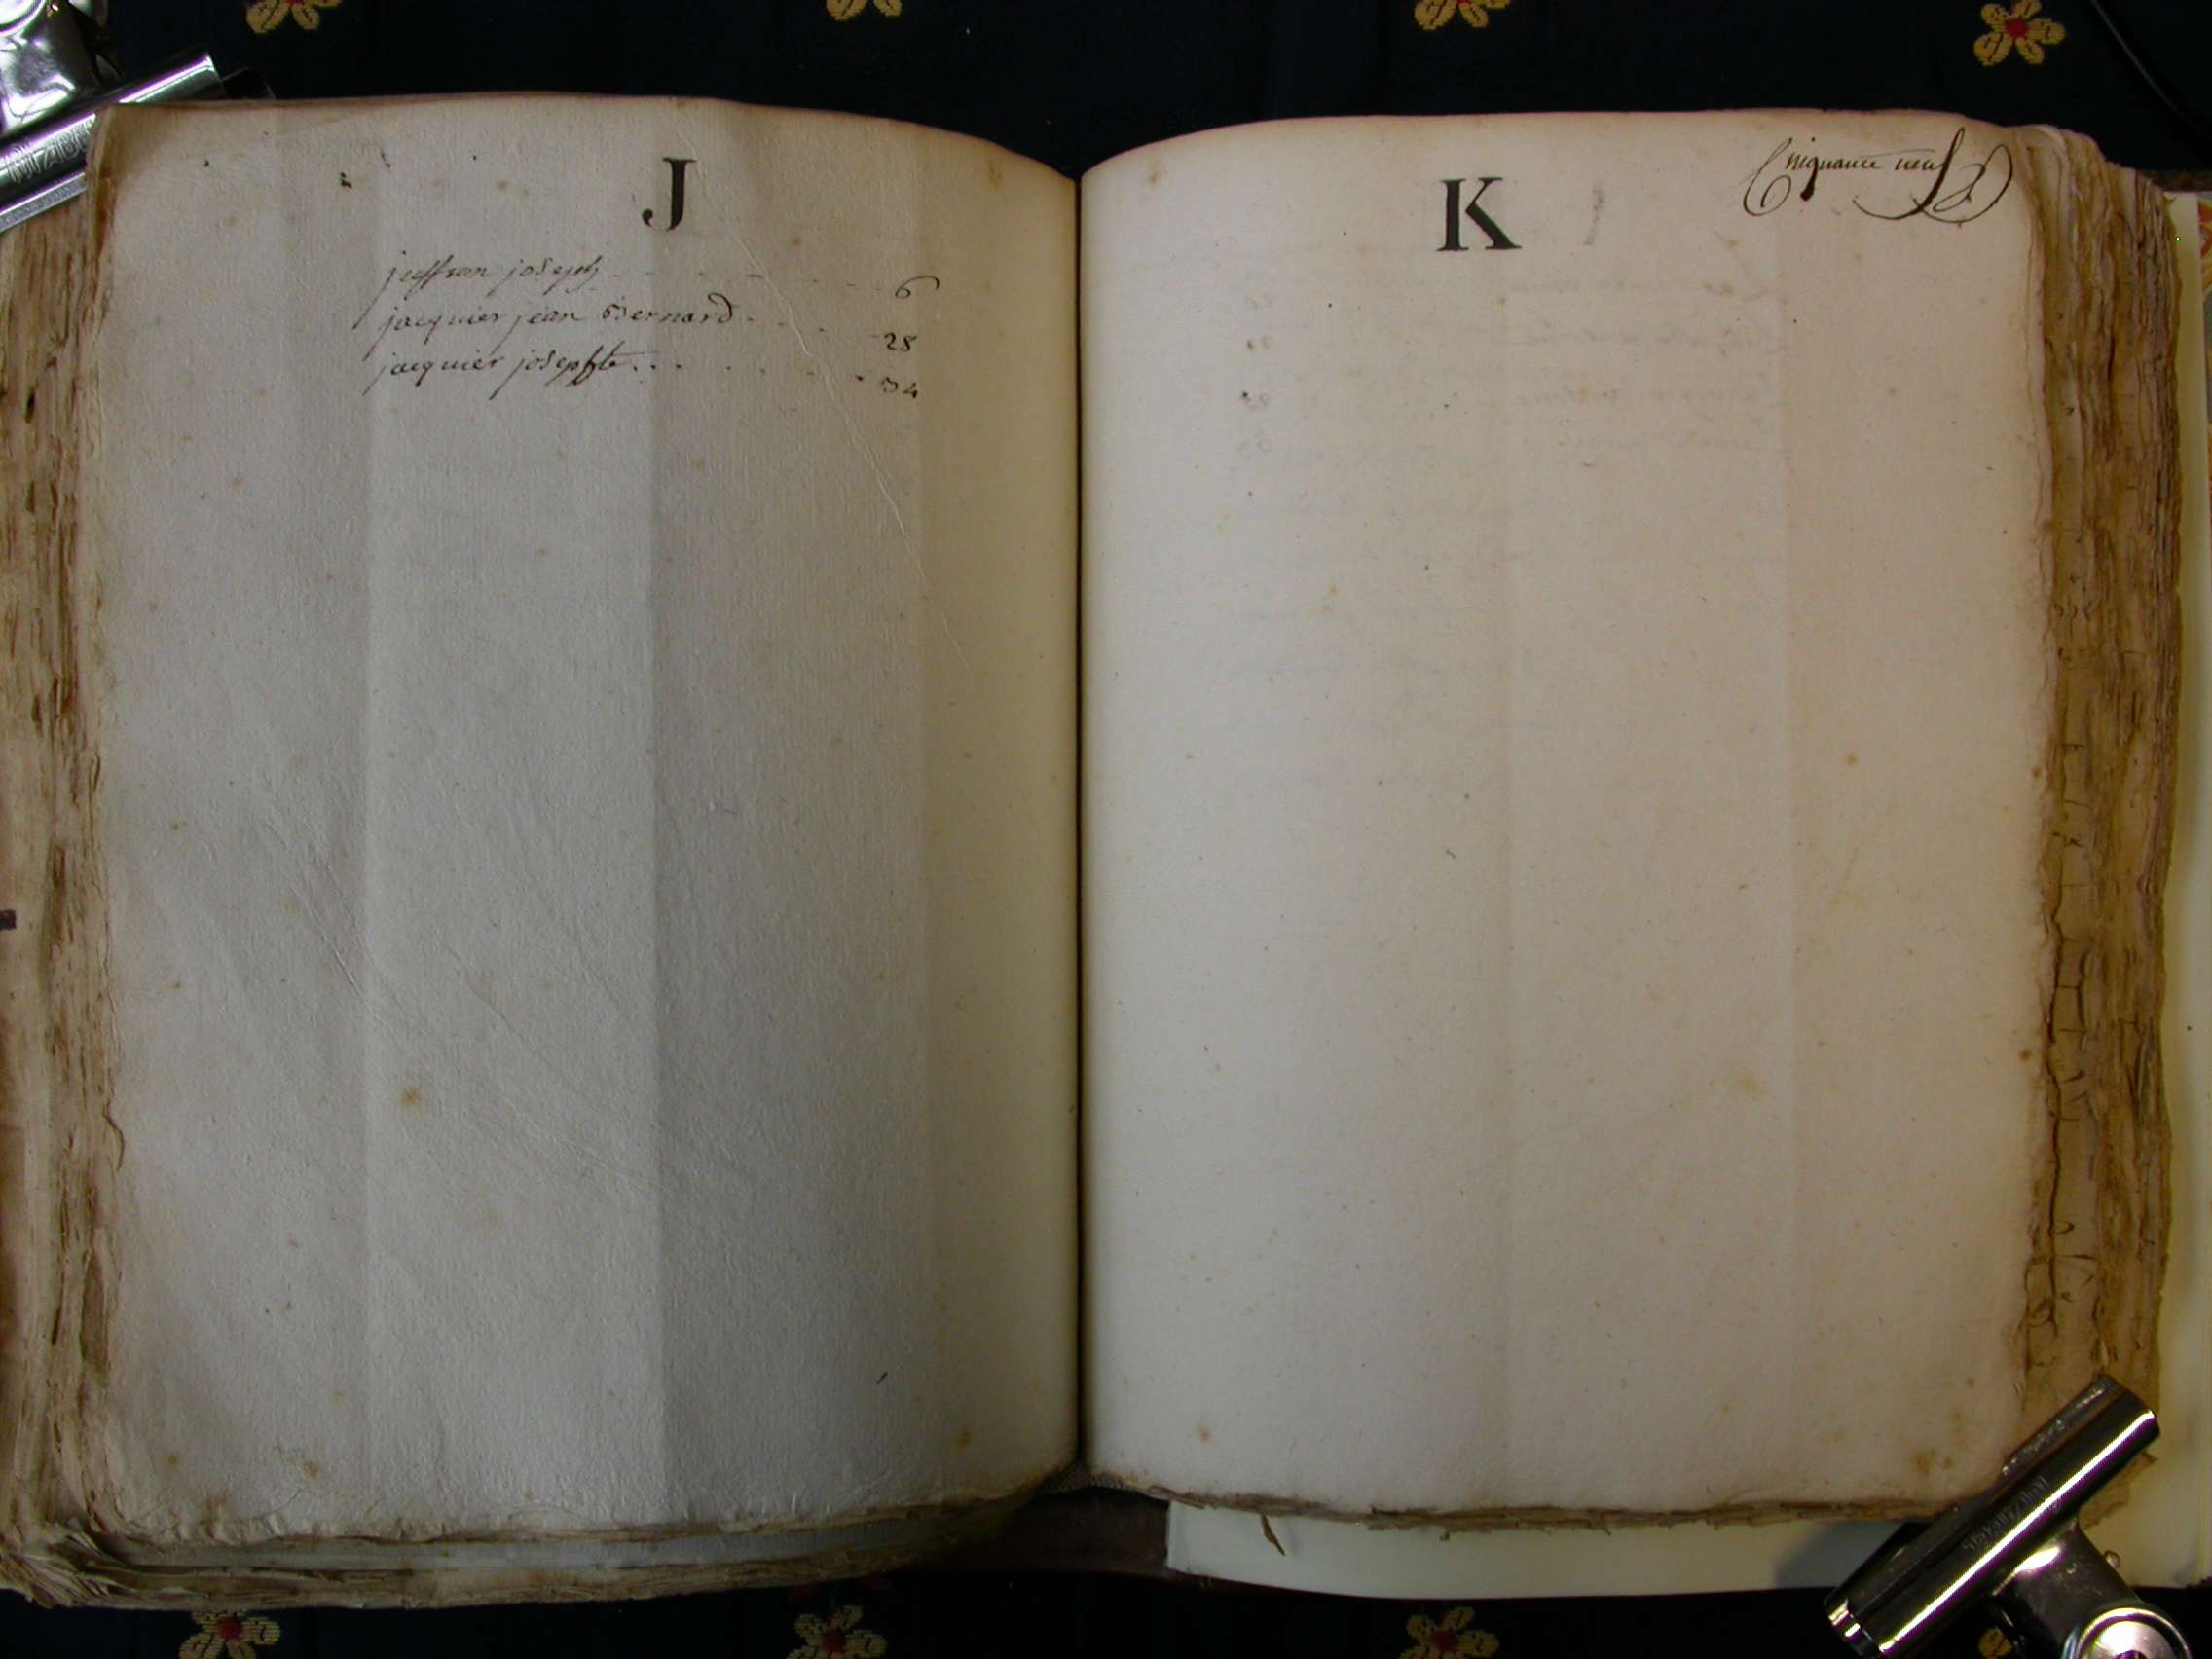 J
jeffran joseph - - - - - - 6
jacquier jean Bernard - - - - 28
jacquier josephte . . . . . . 34
K
Cinquante neuf